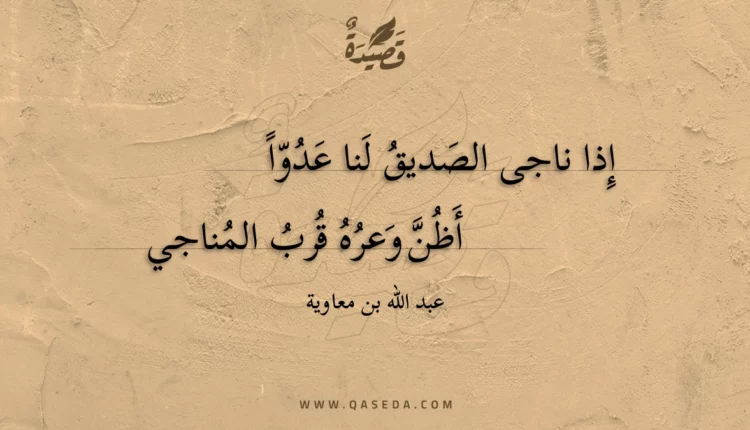 قَصِيْدَةٌ
إِذا ناجى الصَديقُ لَنا عَدُوّاً
أَظُنَّ وَعرُهُ قُربُ المُناجي
عبد الله بن معاوية
WWW.QASEDA.COM